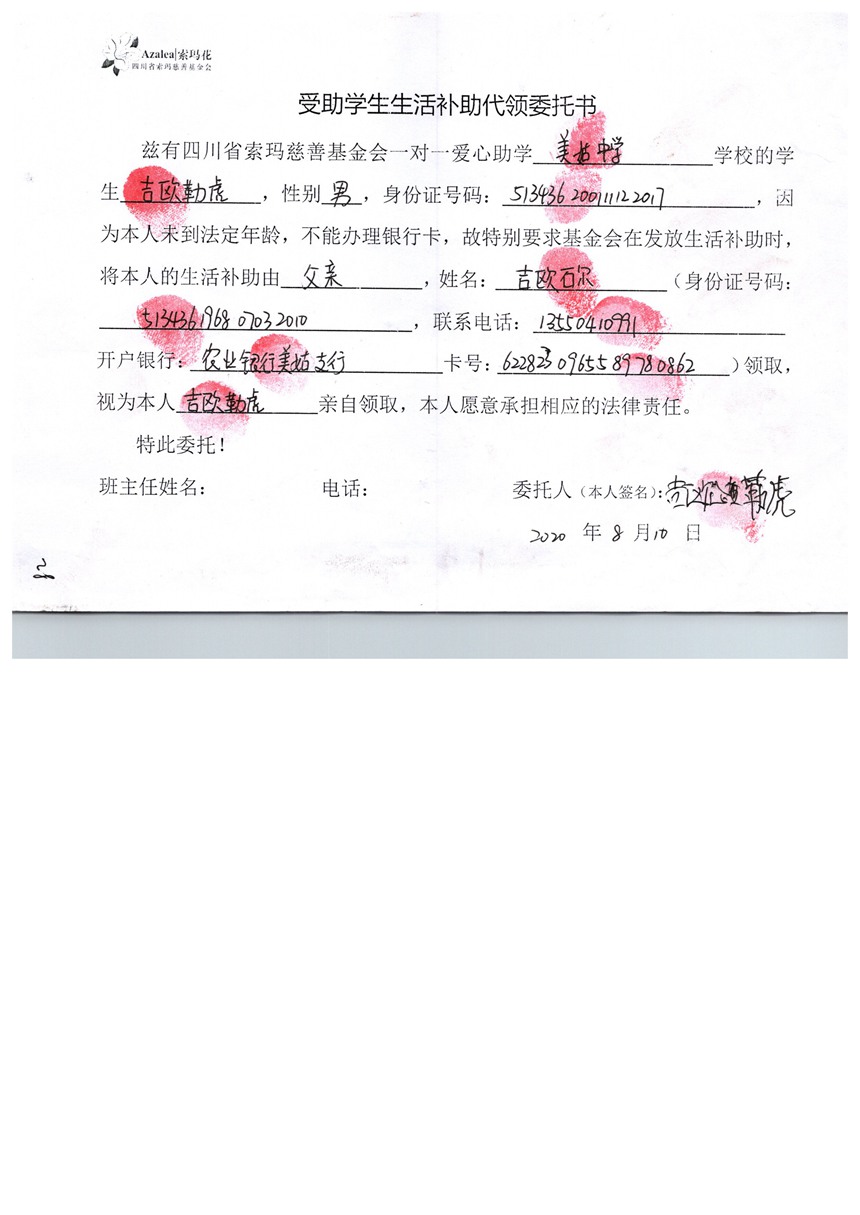 Azalea|索玛花
四川省索玛慈善基金会
受助学生生活补助代领委托书
兹有四川省索玛慈善基金会一对一爱心助学 美姑中学 学校的学
生 吉欧勤虎 ，性别 男 ，身份证号码： 513436200111122017 ，因
为本人未到法定年龄，不能办理银行卡，故特别要求基金会在发放生活补助时，
将本人的生活补助由 父亲 ，姓名： 吉欧石尔 （身份证号码：
513436196807032010 ，联系电话： 13550410991
开户银行： 农业银行美姑支行 卡号： 6228230965589780862 ）领取，
视为本人 吉欧勤虎 亲自领取，本人愿意承担相应的法律责任。
特此委托！
班主任姓名： 电话： 委托人（本人签名）：
2020 年 8 月 10 日